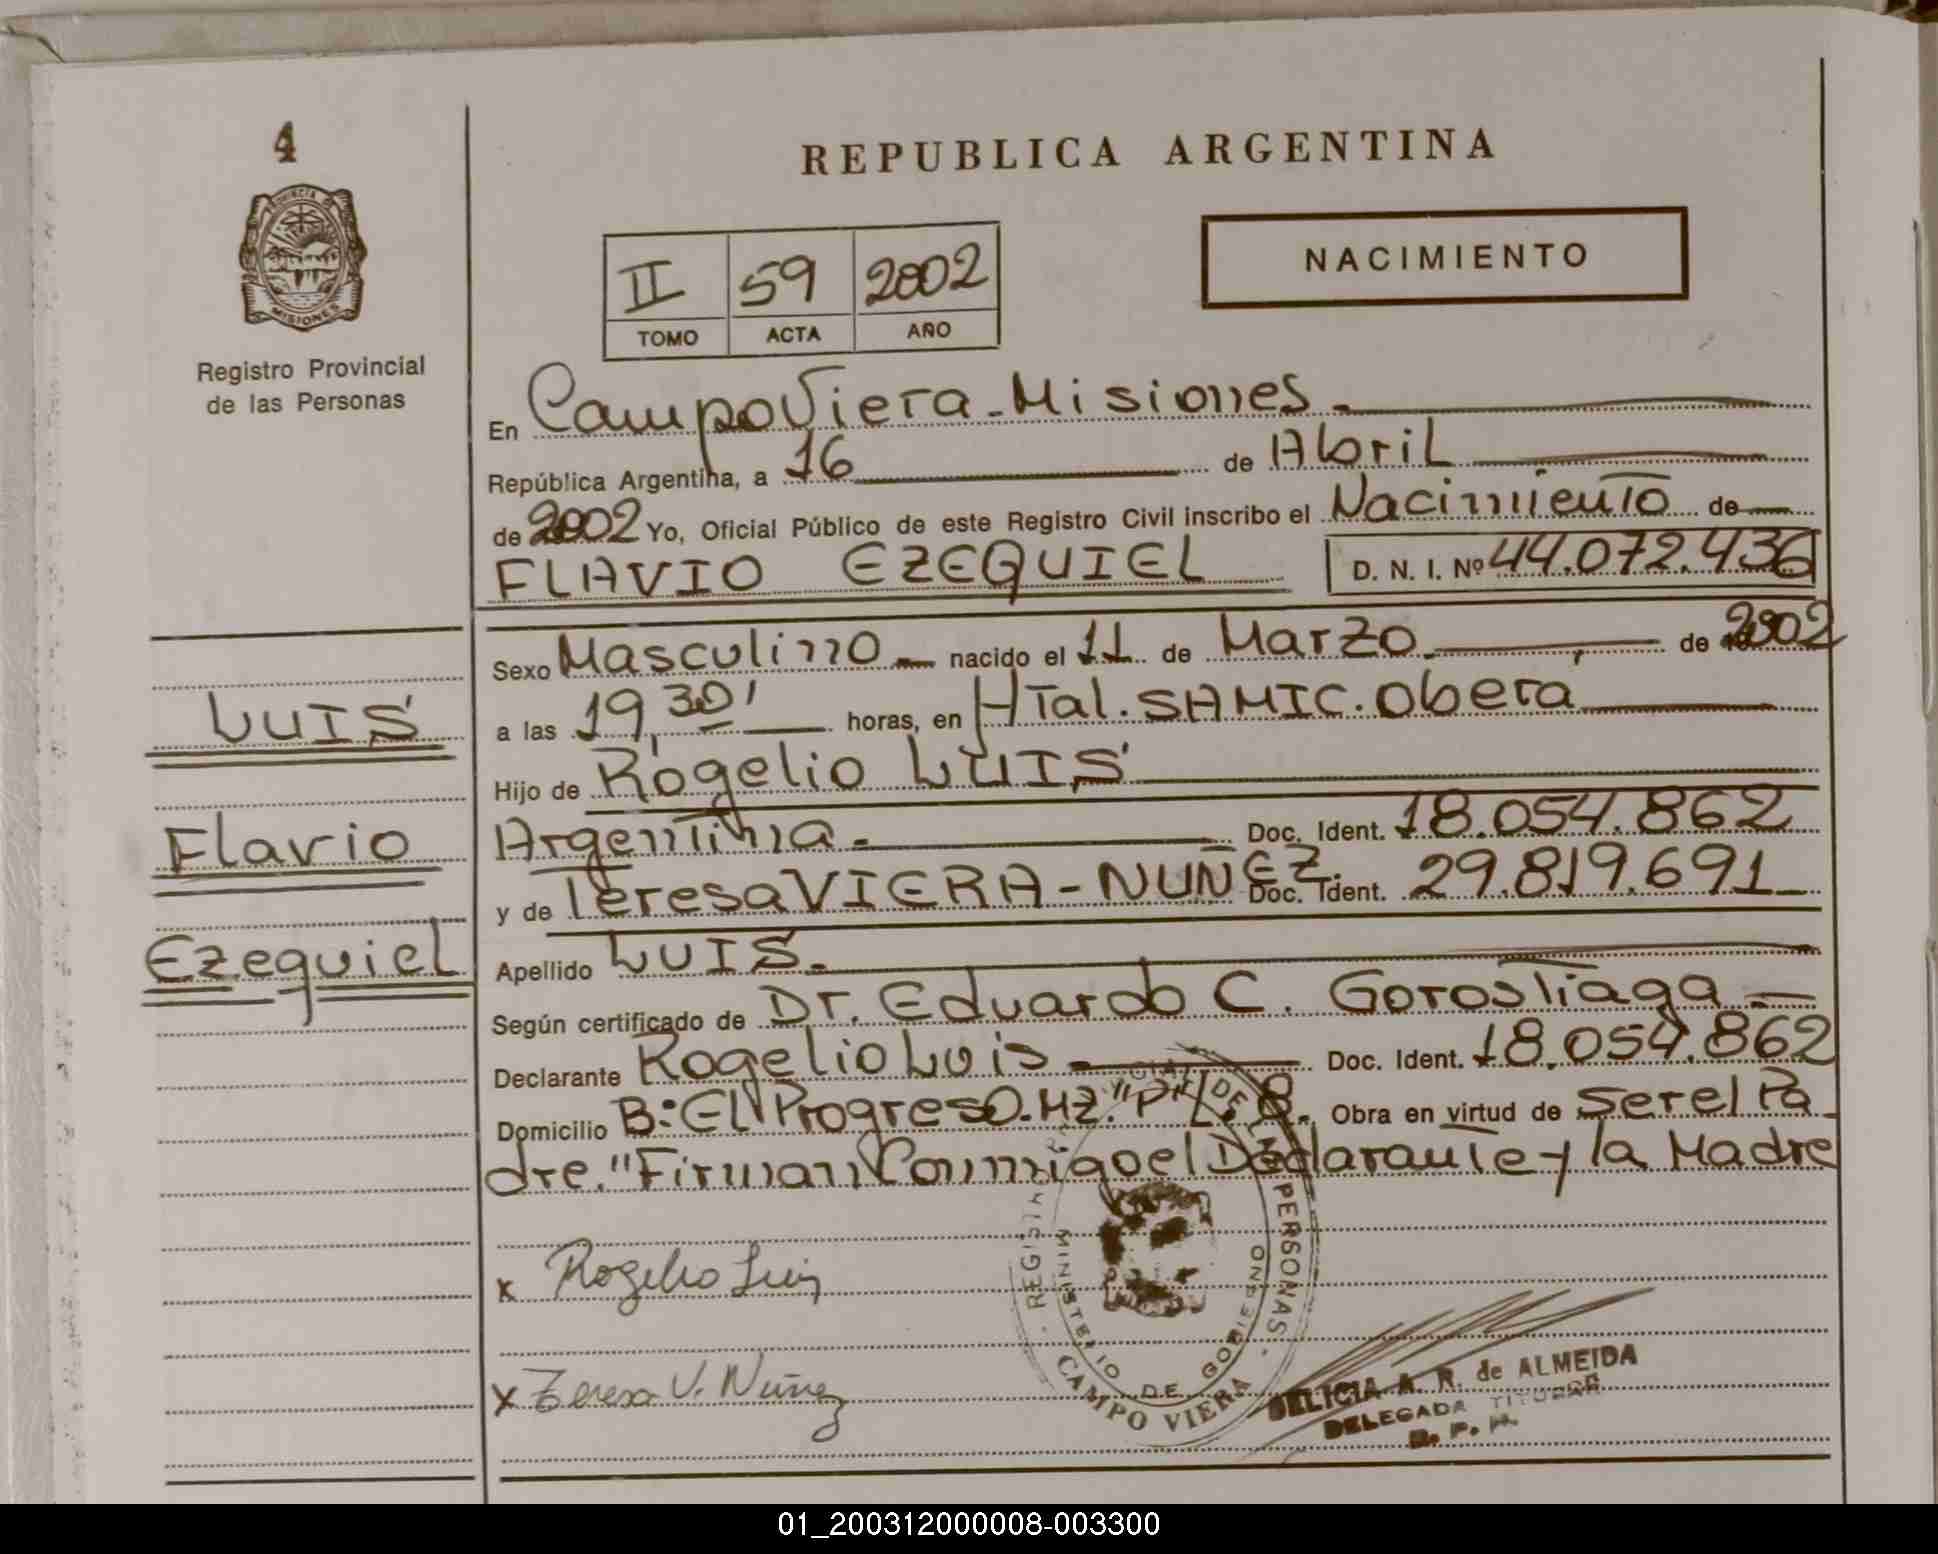 4
REPUBLICA ARGENTINA
PROVINCIA DE
MISIONES
Registro Provincial
de las Personas
II 59 2002
TOMO ACTA AÑO
NACIMIENTO
En Campo Viera - Misiones.
República Argentina, a 16 de Abril
de 2002 Yo, Oficial Público de este Registro Civil inscribo el Nacimiento de
FLAVIO EZEQUIEL D. N. I. Nº 44.072.436
Sexo Masculino nacido el 11 de Marzo de 2002
a las 19,30' horas, en Htal. SAMIC. Obera
Hijo de Rogelio LUIS
Argentina. Doc. Ident. 18.054.862
y de Teresa VIERA - NUÑEZ. Doc. Ident. 29.819.691
Apellido LUIS.
Según certificado de Dr. Eduardo C. Gorostiaga
Declarante Rogelio Luis Doc. Ident. 18.054.862
Domicilio B: El Progreso. Mz. "P" L. 8. Obra en virtud de ser el Pa
dre. "Firman Conmigo el Declarante y la Madre
LUIS
Flavio
Ezequiel
x Rogelio Luis
x Teresa V. Nuñez
REGISTRO PROVINCIAL DE LAS PERSONAS
MINISTERIO DE GOBIERNO
CAMPO VIERA
DELICIA A. R. de ALMEIDA
DELEGADA TITULAR
R. P. P.
01_200312000008-003300